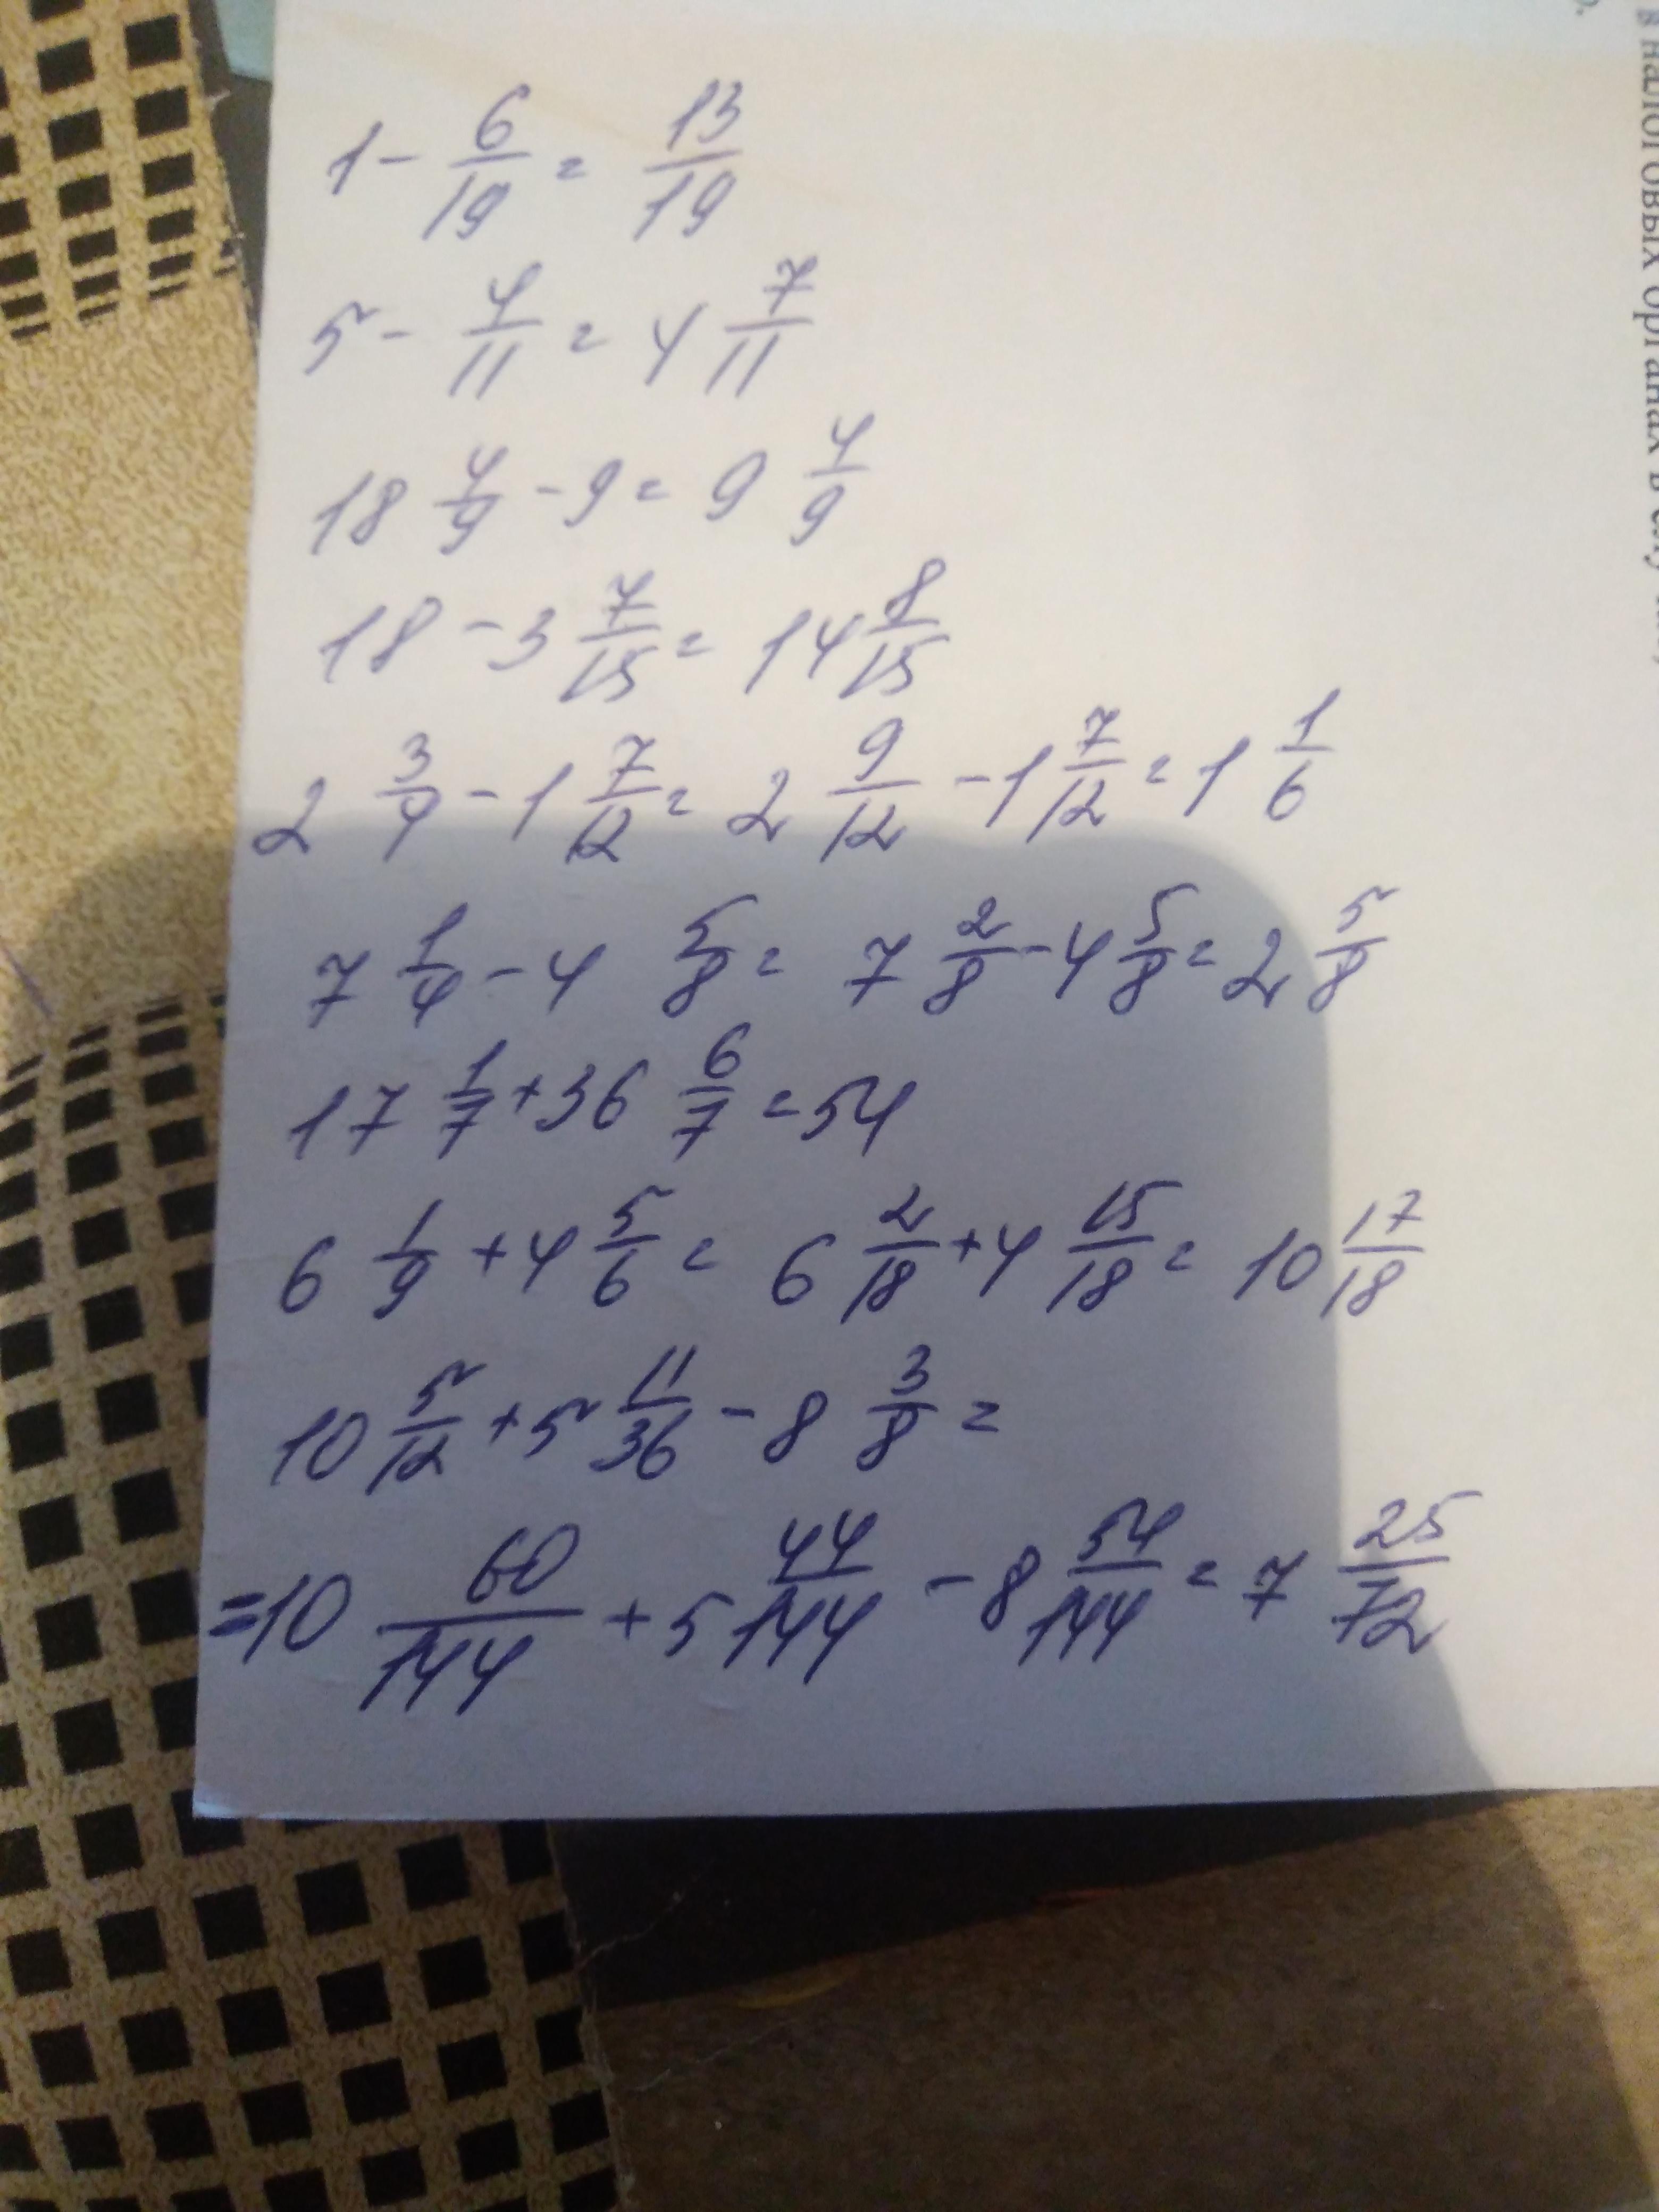 1 - 6/19 = 13/19
5 - 4/11 = 4 7/11
18 4/9 - 9 = 9 4/9
18 - 3 7/15 = 14 8/15
2 3/4 - 1 7/12 = 2 9/12 - 1 7/12 = 1 1/6
7 1/4 - 4 5/8 = 7 2/8 - 4 5/8 = 2 5/8
17 1/7 + 36 6/7 = 54
6 1/9 + 4 5/6 = 6 2/18 + 4 15/18 = 10 17/18
10 5/12 + 5 11/36 - 8 3/8 =
= 10 60/144 + 5 44/144 - 8 54/144 = 7 25/72
в налоговых органах в